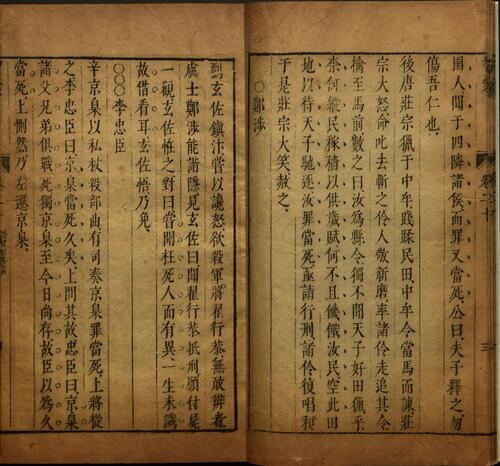 國人聞于四隣諸侯而罪又當死公曰夫子釋之勿
傷吾仁也
後唐莊宗獵于中牟踐蹂民田中牟令當馬而諫莊
宗大怒命叱去斬之伶人敬新磨率諸伶走追其令
擒至馬前數之曰汝爲縣令獨不聞天子好田獵乎
奈何縱民稼穡以供歲賦何不且饑餓汝民空此田
地以待天子馳逐汝罪當死亟請行刑諸伶復唱和
于是莊宗大笑赦之
○鄭涉
劉玄佐鎮汴嘗以讒怒欲殺軍將翟行恭無敢辨者
處士鄭涉能諧隱見玄佐曰聞翟行恭抵刑願付屍
一觀玄佐怪之對曰嘗聞枉死人面有異一生未識
故借看耳玄佐悟乃免
○○○李忠臣
辛京杲以私杖殺部曲有司奏京杲罪當死上將從
之李忠臣曰京杲當死久矣上問其故忠臣曰京杲
諸父兄弟俱戰死獨京杲至今日尚存故臣以為久
當死上惻然乃左遷京杲
卷二十
三